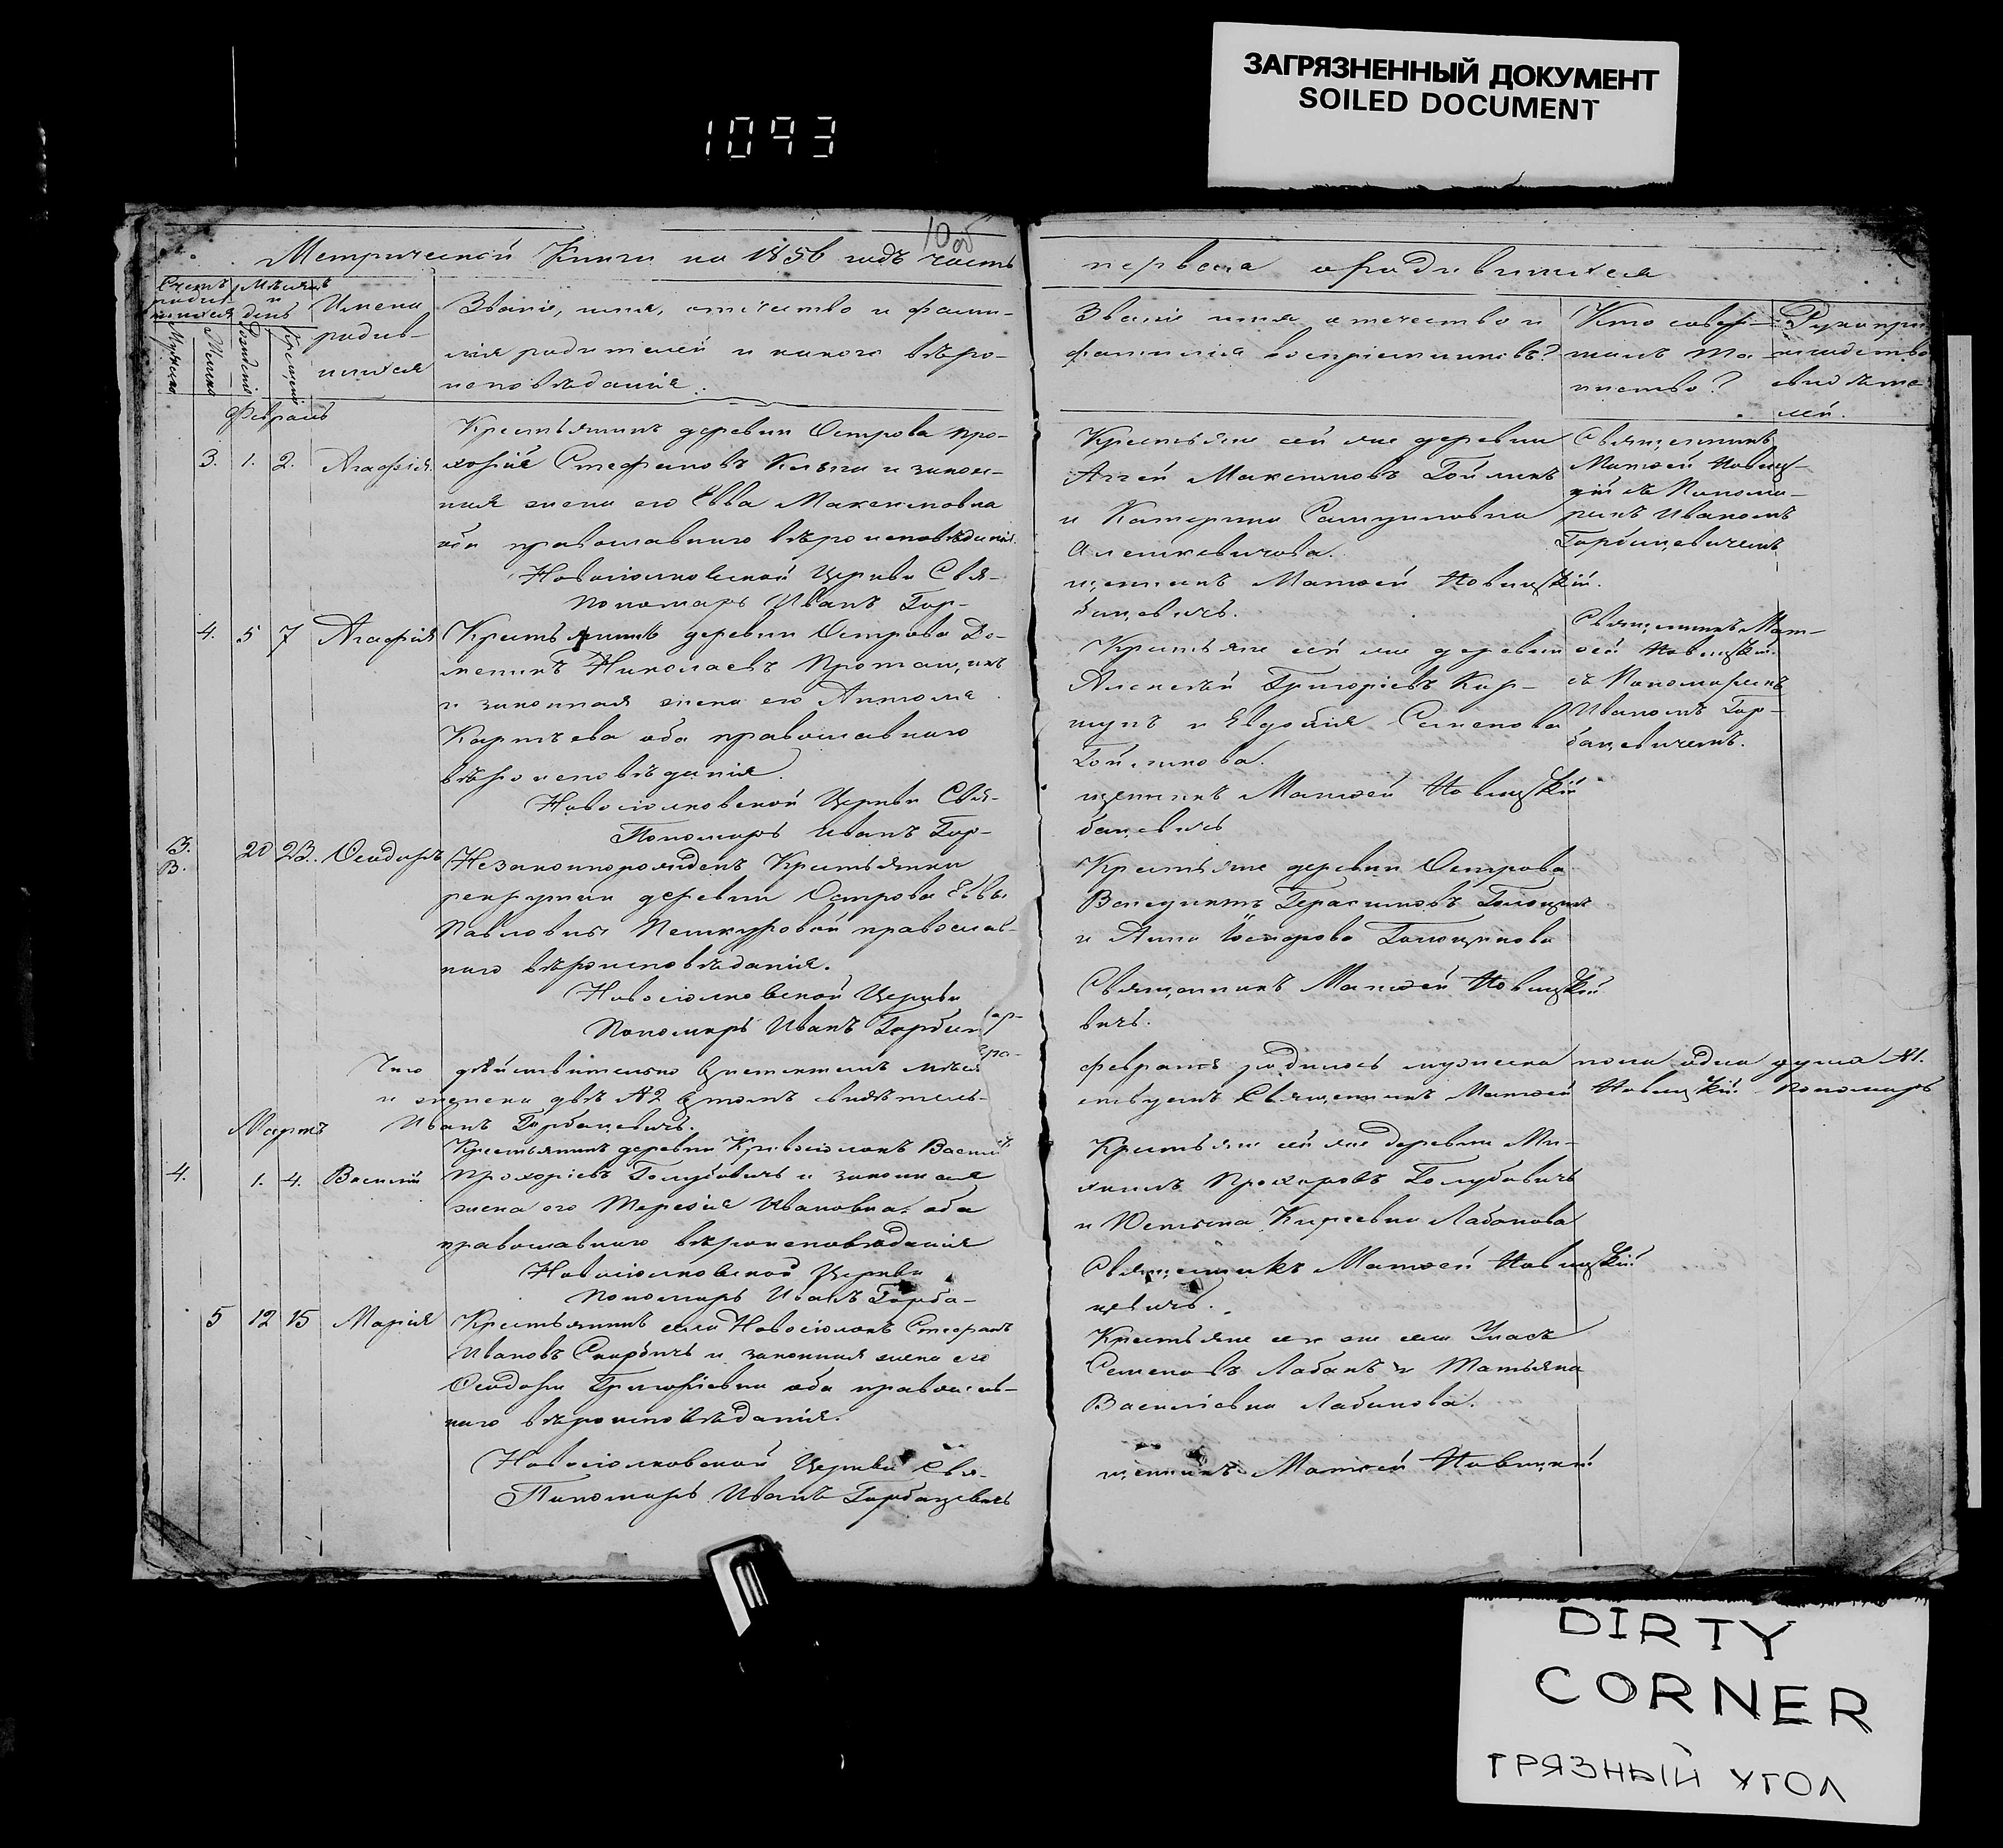 ЗАГРЯЗНЕННЫЙ ДОКУМЕНТ
SOILED DOCUMENT
1093
10 об
Метрической Книги на 1856 годъ часть
первая о родившихся
Счетъ родив-шихся
Мужеска
Женска
Мѣсяцъ и день
Рожденія
Крещенія
Имена
родив-
шихся
Званіе, имя, отчество и фами-
лія родителей и какого вѣро-
исповѣданія.
Званіе имя отечество и
фамилія воспріемниковъ?
Кто совер-
шалъ та-
инство?
Рукопри-
кладство
свидѣте-
лей.
Февраль
3. 1. 2. Агафія
Крестьянинъ деревни Острова Про-
хорій Стефановъ и закон-
ная жена его Евва Максимовна
оба православнаго вѣроисповѣданія.
Новосіолковской Церкви Свя-
Пономарь Иванъ Гор-
Крестьяне сей же деревни
Аггей Максимовъ
и Катерина
Алешкевичова.
щенникъ Матѳей Новицкій.
бацевичъ.
Священникъ
Матѳей Новиц-
кій съ Понома-
ремъ Иваномъ
Горбацевичемъ
4. 5 7 Агафія
Крестьянинъ деревни Острова До-
Николаевъ
и законная жена его
оба православнаго
вѣроисповѣданія.
Новосіолковской Церкви Свя-
Пономарь Иванъ Гор-
Крестьяне сей же деревни
Алексѣй Григоріевъ Кор-
шунъ и Евдокія Семенова
щенникъ Матѳей Новицкій
бацевичъ
Священникъ Мат-
ѳей Новицкій
съ Пономаремъ
Иваномъ Гор-
бацевичемъ.
3.
В. 20 23. Ѳеодоръ
Незаконнорожденъ Крестьянки
рекрутки деревни Острова Еввы
Павловны Пешкуровой православ-
наго вѣроисповѣданія.
Новосіолковской Церкви
Пономарь Иванъ
Крестьяне деревни Острова
Венедиктъ Герасимовъ
и Анна
Священникъ Матѳей Новицкій
вичъ.
Что дѣйствительно въ мѣсяцѣ
февралѣ родилось мужеска пола одна душа №1.
и женска двѣ №2 въ томъ свидѣтель-
ствуетъ Священникъ Матѳей Новицкій. Пономарь
Иванъ Горбацевичъ.
Мартъ
4. 1. 4. Василій
Крестьянинъ деревни Василій
Прохоріевъ Голубовичъ и законная
жена его Терезія Ивановна оба
православнаго вѣроисповѣданія
Новосіолковской Церкви
Пономарь Иванъ Горба-
Крестьяне сей же деревни Ми-
хаилъ Прохоровъ Голубовичъ
и Юстына Лабанова
Священникъ Матѳей Новицкій
цевичъ.
5 12 15 Марія
Крестьянинъ села Новосіолокъ Стефанъ
Ивановъ и законная жена его
Ѳеодора Григоріевна оба православ-
наго вѣроисповѣданія.
Новосіолковской Церкви Свя-
Пономарь Иванъ Горбацевичъ
Крестьяне сего же села Уласъ
Семеновъ Лабанъ и Татьяна
Василіевна Лабанова.
щенникъ Матѳей Новицкій
DIRTY
CORNER
ГРЯЗНЫЙ УГОЛ